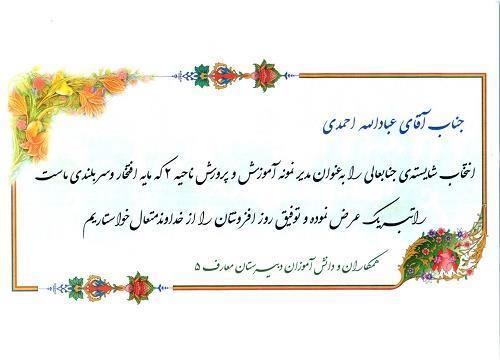 جناب آقای عبادالله احمدی
انتخاب شایسته‌ی جنابعالی را به‌عنوان مدیر نمونه آموزش و پرورش ناحیه ۲ که مایه افتخار و سربلندی ماست
را تبریک عرض نموده و توفیق روز افزونتان را از خداوند متعال خواستاریم
همکاران و دانش آموزان دبیرستان معارف ۵